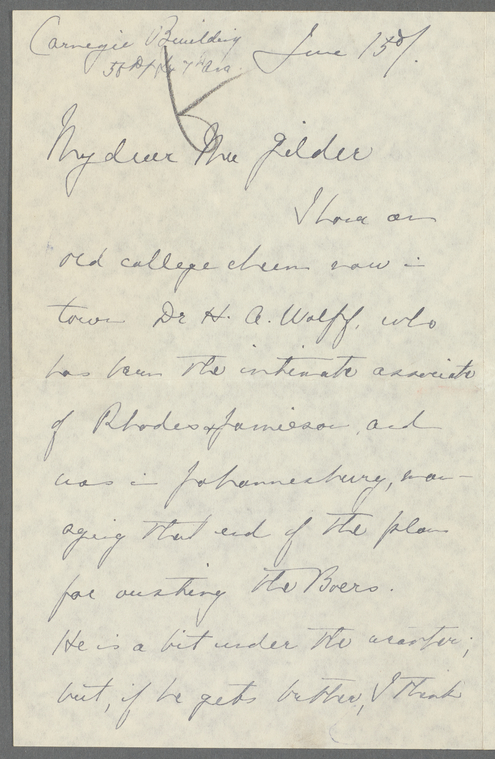 Carnegie Building
56th St & 7th Ave. June 13th/.
My dear Mr Gilder
I have an
old college chum now in
town Dr H. A. Wolff, who
has been the intimate associate
of Rhodes & Jamieson, and
was in Johannesburg, man-
aging that end of the plan
for ousting the Boers.
He is a bit under the weather;
but, if he gets better, I think